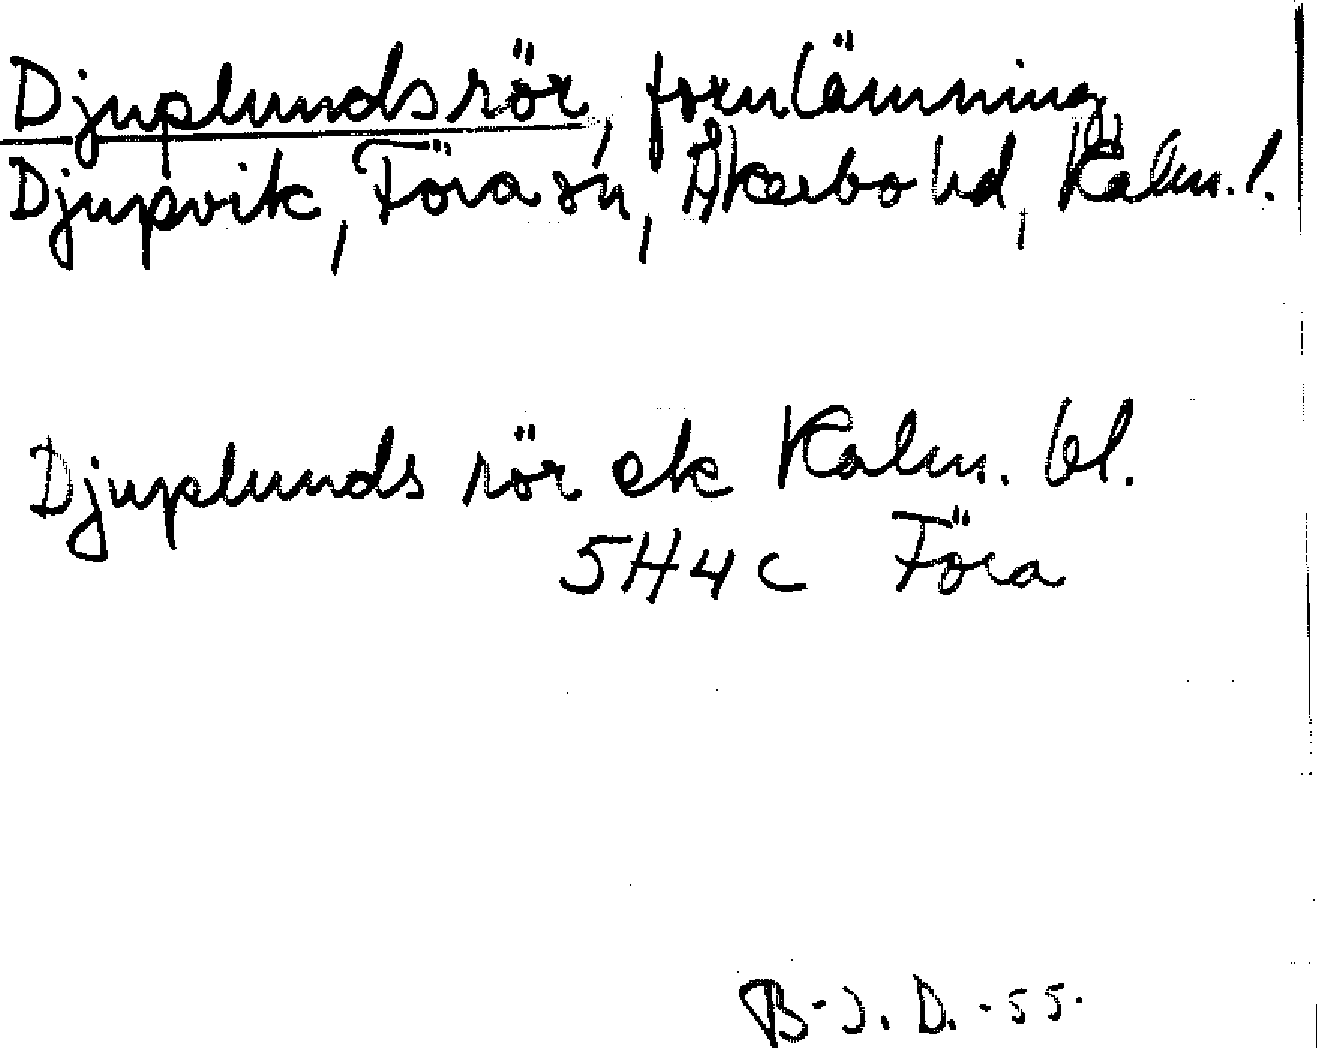 Djuplundsrör, fornlämning
Djupvik, Föra sn, Åkerbo hd, Kalm. l.
Djuplunds rör ek Kalm. bl.
5H4c Föra
B-J. D. -55.